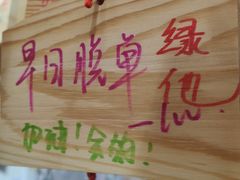 早日脱单
绿他
加油！会的！